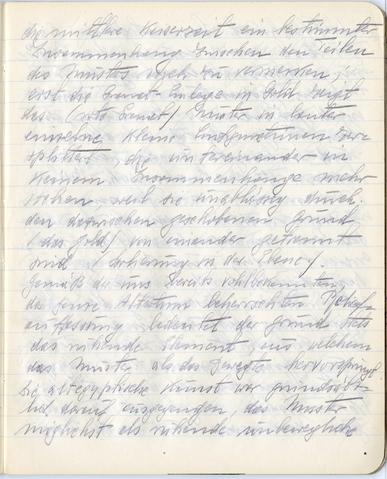 die mittlere Kaiserzeit ein bestimmter
Zusammenhang zwischen den Teilen
des Musters noch zu vermerken,
erst die Granat-Einlage in Gold zeigt
das (rote Granat) Muster in lauter
einzelne kleine
splittert, die untereinander in
keinem Zusammenhange mehr
stehen weil sie unablässig durch
den dazwischen geschobenen Grund
(das Gold) von einander getrennt
sind (Isolierung in der Ebene).
Gemäß der uns bereits wohlbekannten,
das ganze Altertum beherrschten
auffassung bedeutet der Grund stets
das ruhende Element, aus welchem
das Muster als das bewegte hervorspringt
Die altegyptische Kunst war grundsätz-
lich darauf ausgegangen, das Muster
möglichst als ruhende unbewegliche